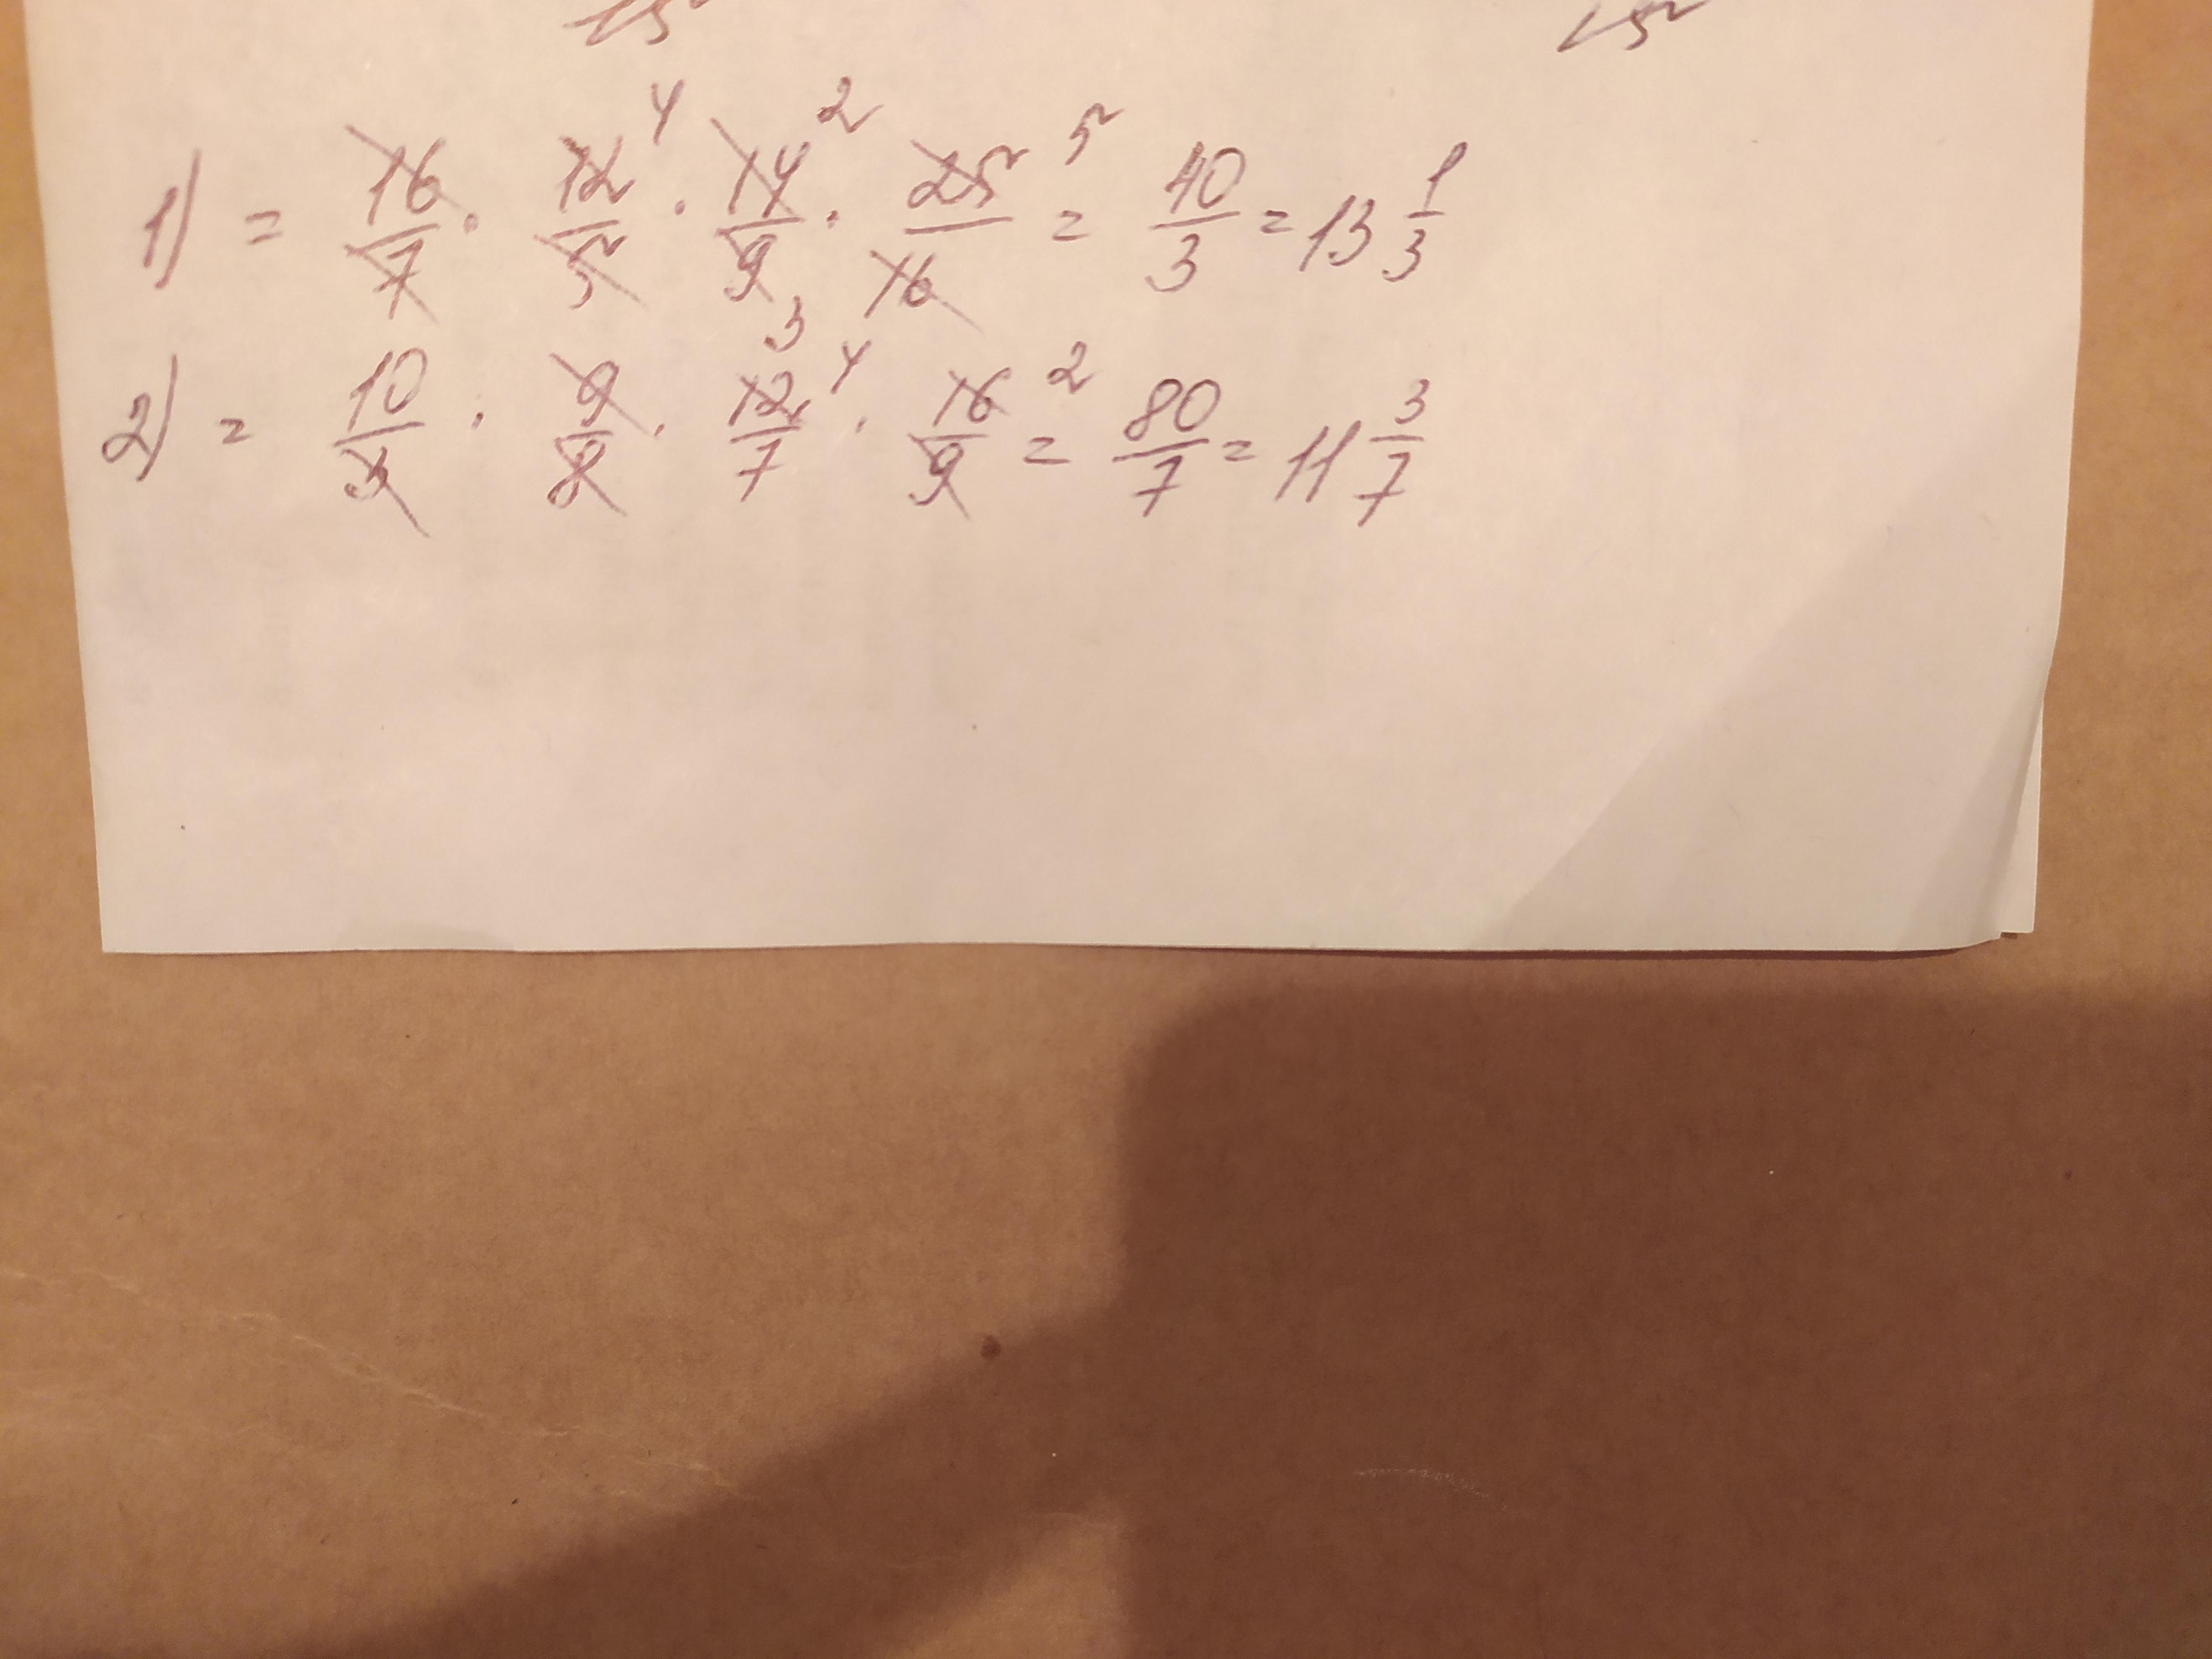 15 15
1) = 16/7 · 12/5 4 · 14/9 2 3 · 25/16 5 = 40/3 = 13 1/3
2) = 10/3 · 9/8 · 12/7 4 · 16/9 2 = 80/7 = 11 3/7